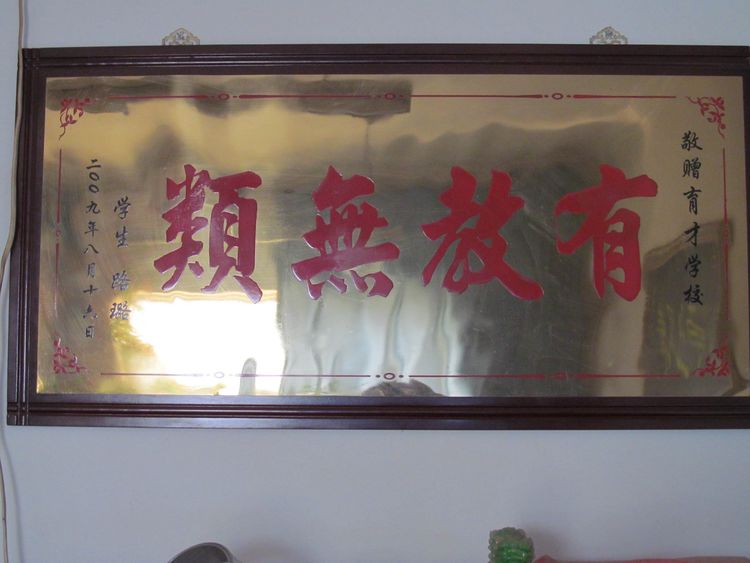 敬赠育才学校
有教無類
学生 路璐
二〇〇九年八月十六日